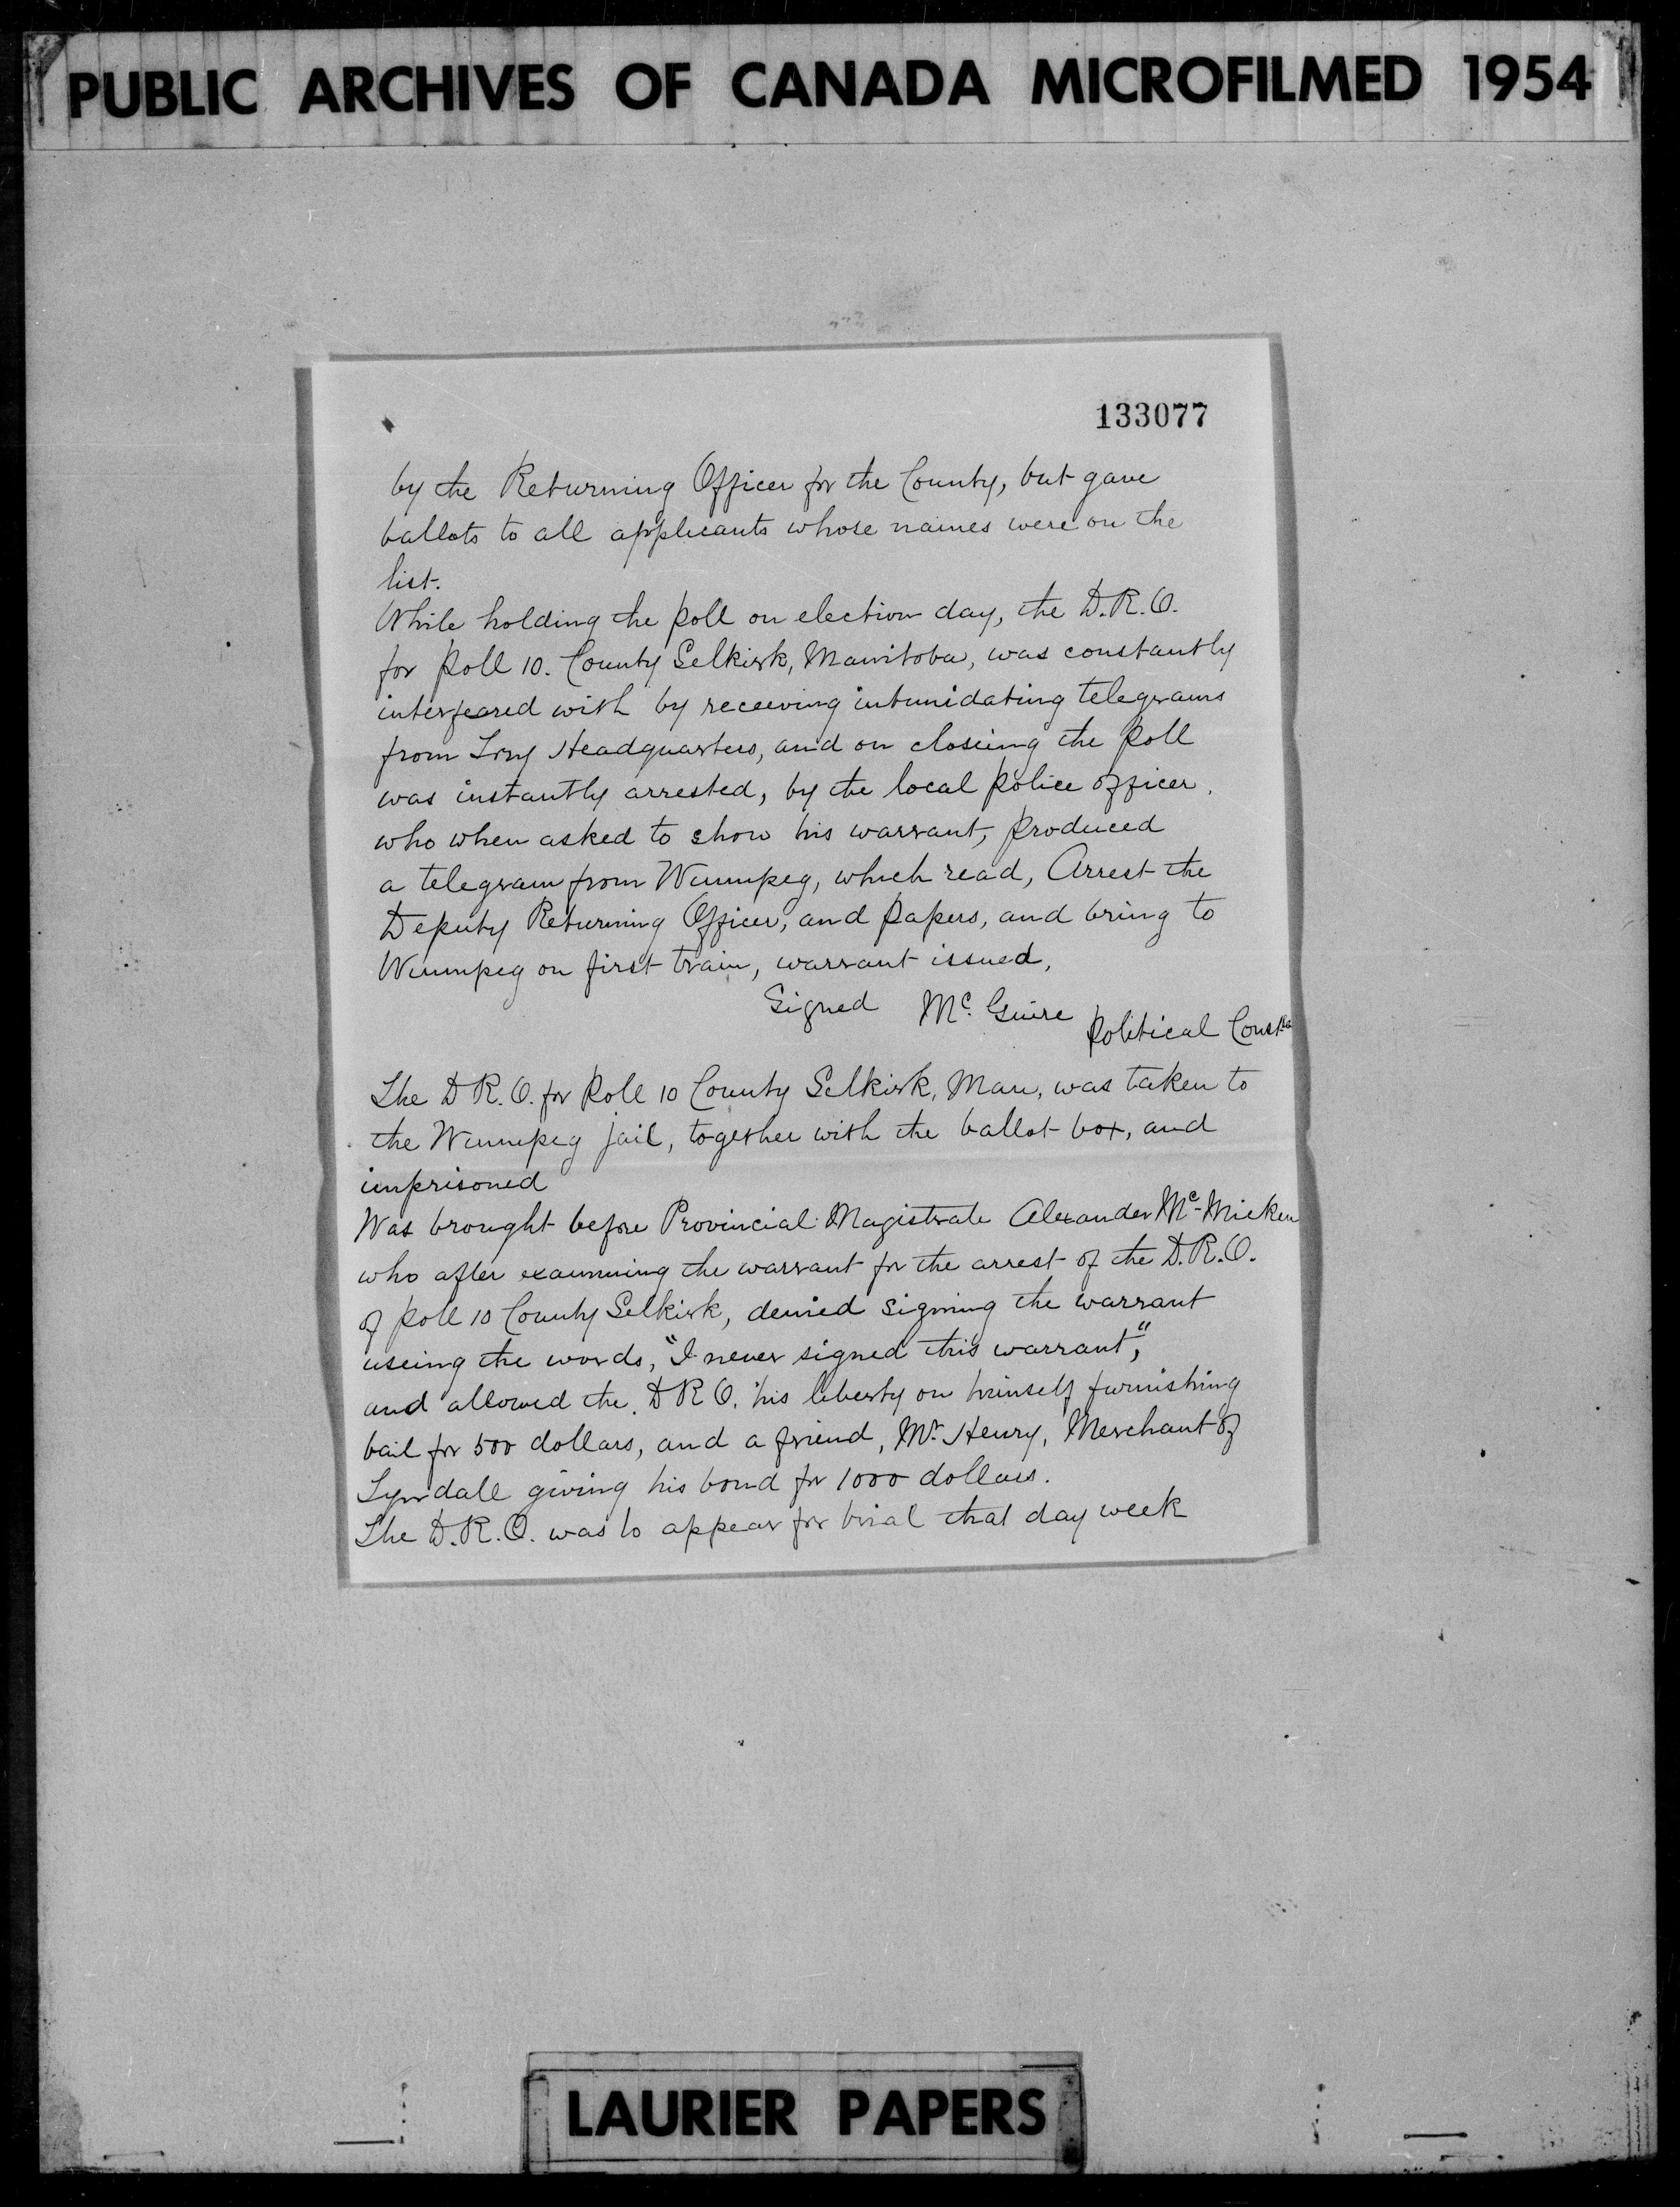 PUBLIC ARCHIVES OF CANADA MICROFILMED 1954
133077
by the Returning Officer for the County, but gave
ballots to all applicants whose names were on the
list.
While holding the poll on election day, the D.R.O.
for Poll 10. County Selkirk, Manitoba, was constantly
interfeared with by receeving intimidating telegrams
from Tory Headquarters, and on closeing the Poll
was instantly arrested, by the local police officer,
who when asked to show his warrant, produced
a telegram from Winnipeg, which read, Arrest the
Deputy Returning Officer, and papers, and bring to
Winnipeg on first train, warrant issued,
Signed Mc. Guire Political Constble
The D R. O. for Poll 10 County Selkirk, Man, was taken to
the Winnipeg jail, together with the ballot box, and
imprisoned
Was brought before Provincial Magistrate Alexander Mc-Micken
who after examining the warrant for the arrest of the D.R.O.
of Poll 10 County Selkirk, denied signing the warrant
useing the words, "I never signed this warrant",
and allowed the D R O. his liberty on himself furnishing
bail for 500 dollars, and a friend, Mr. Henry, Merchant of
Tyndall giving his bond for 1000 dollars.
The D.R.O. was to appear for trial that day week
LAURIER PAPERS